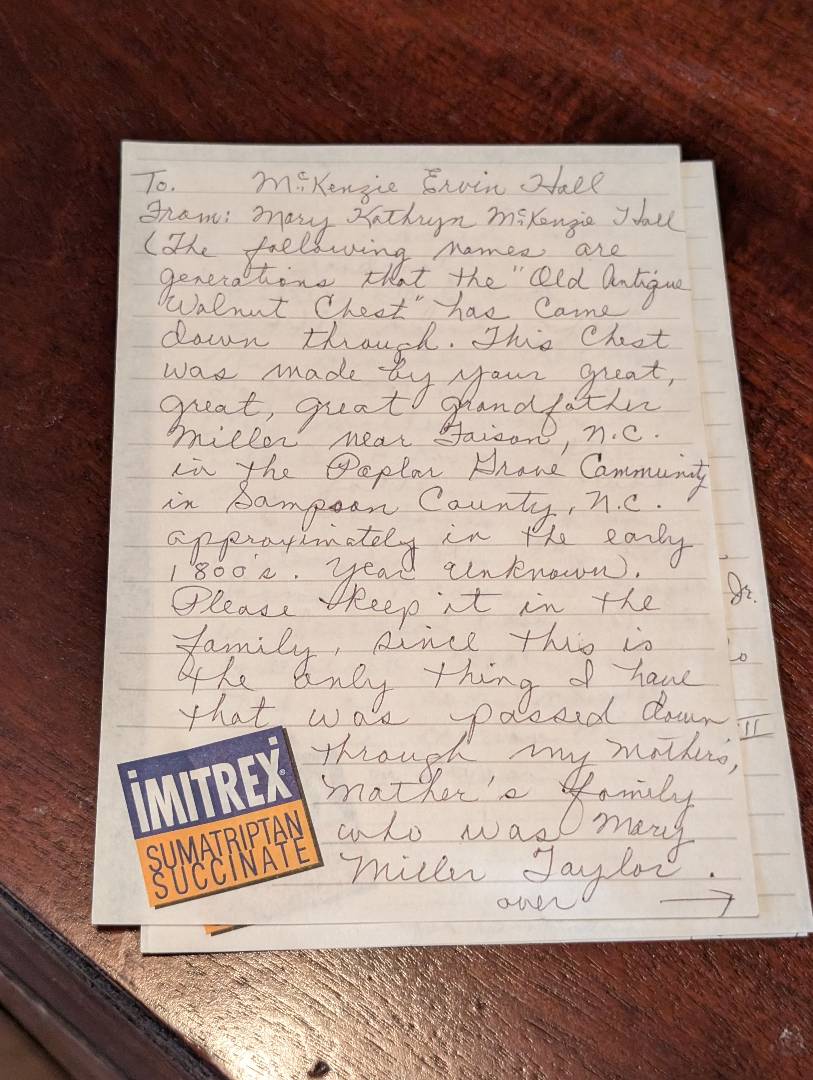 To. McKenzie Ervin Hall
From: Mary Kathryn McKenzie Hall
(The following names are
generations that the "Old Antique
Walnut Chest" has came
down through. This Chest
was made by your great,
great, great grandfather
Miller near Faison, N.C.
in the Poplar Grove Community
in Sampson County, N.C.
approximately in the early
1800's. Year unknown).
Please keep it in the
family, since this is
the only thing I have
that was passed down
through my Mother's,
Mother's family
who was Mary
Miller Taylor.
over →
iMITREX®
SUMATRIPTAN
SUCCINATE
Jr.
II